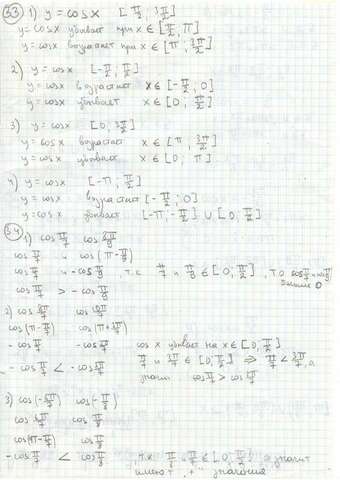 33 1) y = cosx [π/2; 3π/2]
y = cosx убывает при x ∈ [π/2; π]
y = cosx возрастает при x ∈ [π; 3π/2]
2) y = cosx [-π/2; π/2]
y = cosx возрастает x ∈ [-π/2; 0]
y = cosx убывает x ∈ [0; π/2]
3) y = cosx [0; 3π/2]
y = cosx возрастает x ∈ [π; 3π/2]
y = cosx убывает x ∈ [0; π]
4) y = cosx [-π; π/2]
y = cosx возрастает [-π/2; 0]
y = cosx убывает [-π; -π/2] ∪ [0; π/2]
34 1) cos π/7 cos
cos π/7 и cos(π - π/8)
cos π/7 и -cos π/8, т.к. π/7 и π/8 ∈ [0; π/2], то cos π/7 и
0
cos π/7 > -cos π/8
2) cos cos
cos(π - π/7) cos(π + 3π/7)
-cos π/7 -cos 3π/7 cos x убывает на x ∈ [0; π/2]
π/7 и 3π/7 ∈ [0; π/2] ⇒ π/7 < 3π/7, а
-cos π/7 < -cos 3π/7 значит cos π/7 > cos 3π/7
3) cos(- ) cos(-π/8)
cos cos π/8
cos(π - π/7) cos π/8
-cos π/7 < cos π/8, т.к. π/7, π/8 ∈ [0; π/2], а значит
имеют "+" значения